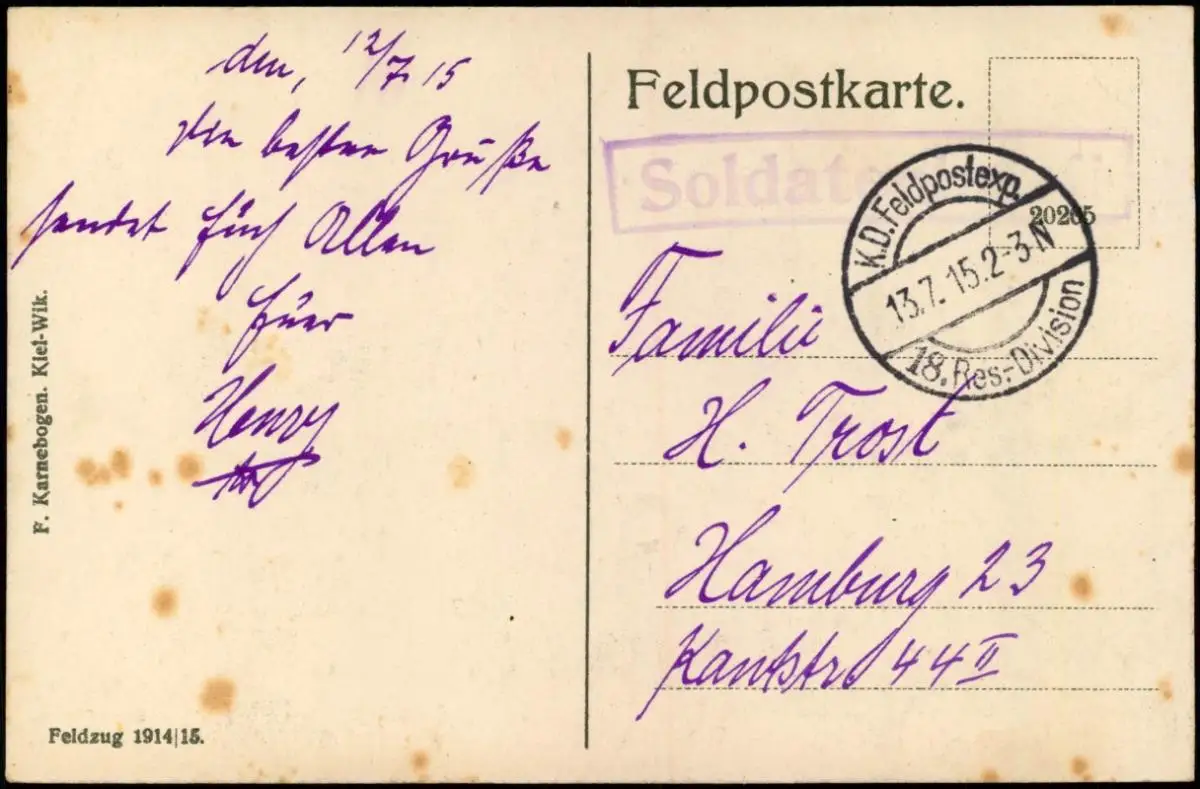 den, 12/7 15
Die besten Grüße
sendet Euch Allen
Euer
Henry
F. Karnebogen. Kiel-Wik.
Feldzug 1914|15.
Feldpostkarte.
Soldatenbrief
20265
K.D. Feldpostexp.
13.7.15. 2-3 N
18. Res.-Division
Familie
H. Trost
Hamburg 23
Kantstr 44 II